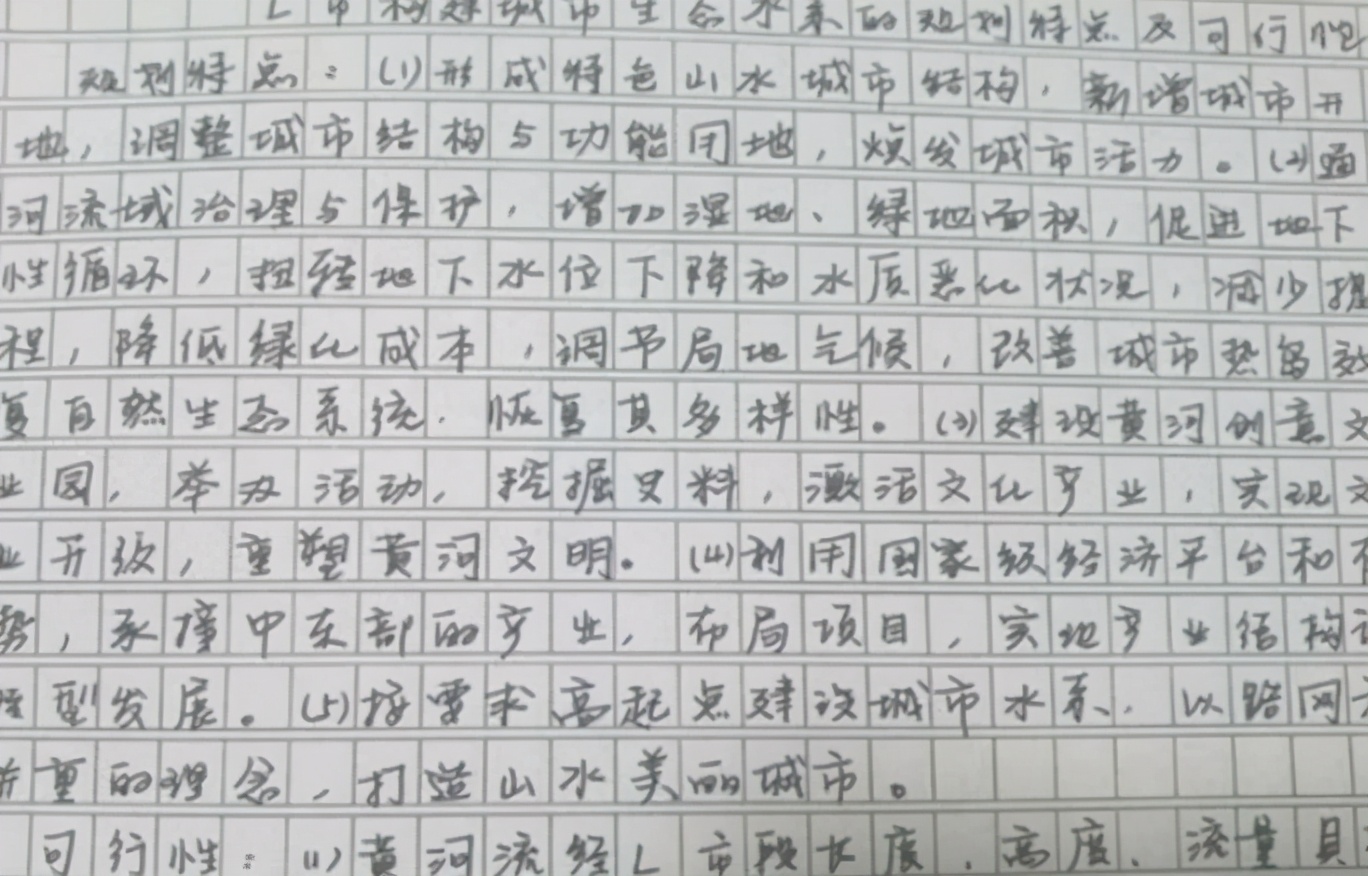 L市构建城市生态水系的规划特点及可行性
规划特点：(1)形成特色山水城市结构，新增城市开
地，调整城市结构与功能用地，焕发城市活力。(2)通
河流域治理与保护，增加湿地、绿地面积，促进地下
性循环，扭转地下水位下降和水质恶化状况，减少
程，降低绿化成本，调节局地气候，改善城市热岛效
复自然生态系统，恢复其多样性。(3)建设黄河创意文
业园，举办活动，挖掘史料，激活文化产业，实现文
业升级，重塑黄河文明。(4)利用国家级经济平台和
势，承撞中东部的产业，布局项目，实地产业结构
型发展。(5)按要求高起点建设城市水系，以路网
并重的理念，打造山水美丽城市。
可行性：(1)黄河流经L市段长度、高度、流量具